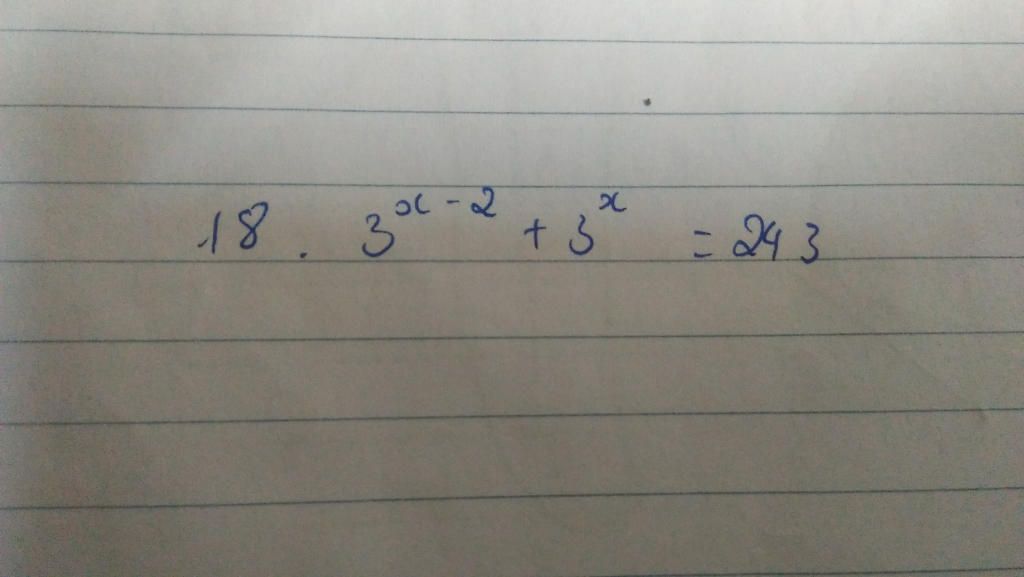 18 . 3^{x-2} + 3^x = 243